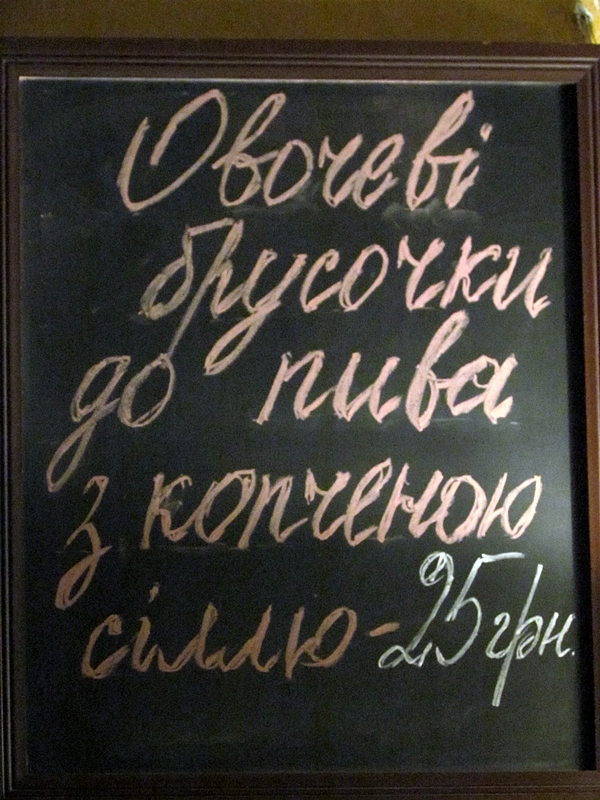 Овочеві
брусочки
до пива
з копченою
сіллю - 25 грн.